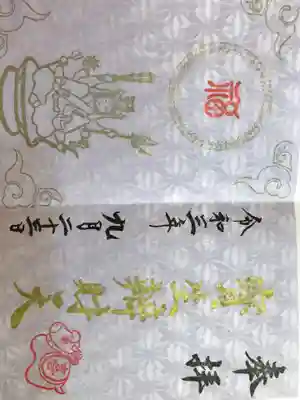 奉拝
辨財天
令和三年 九月二十三日
福